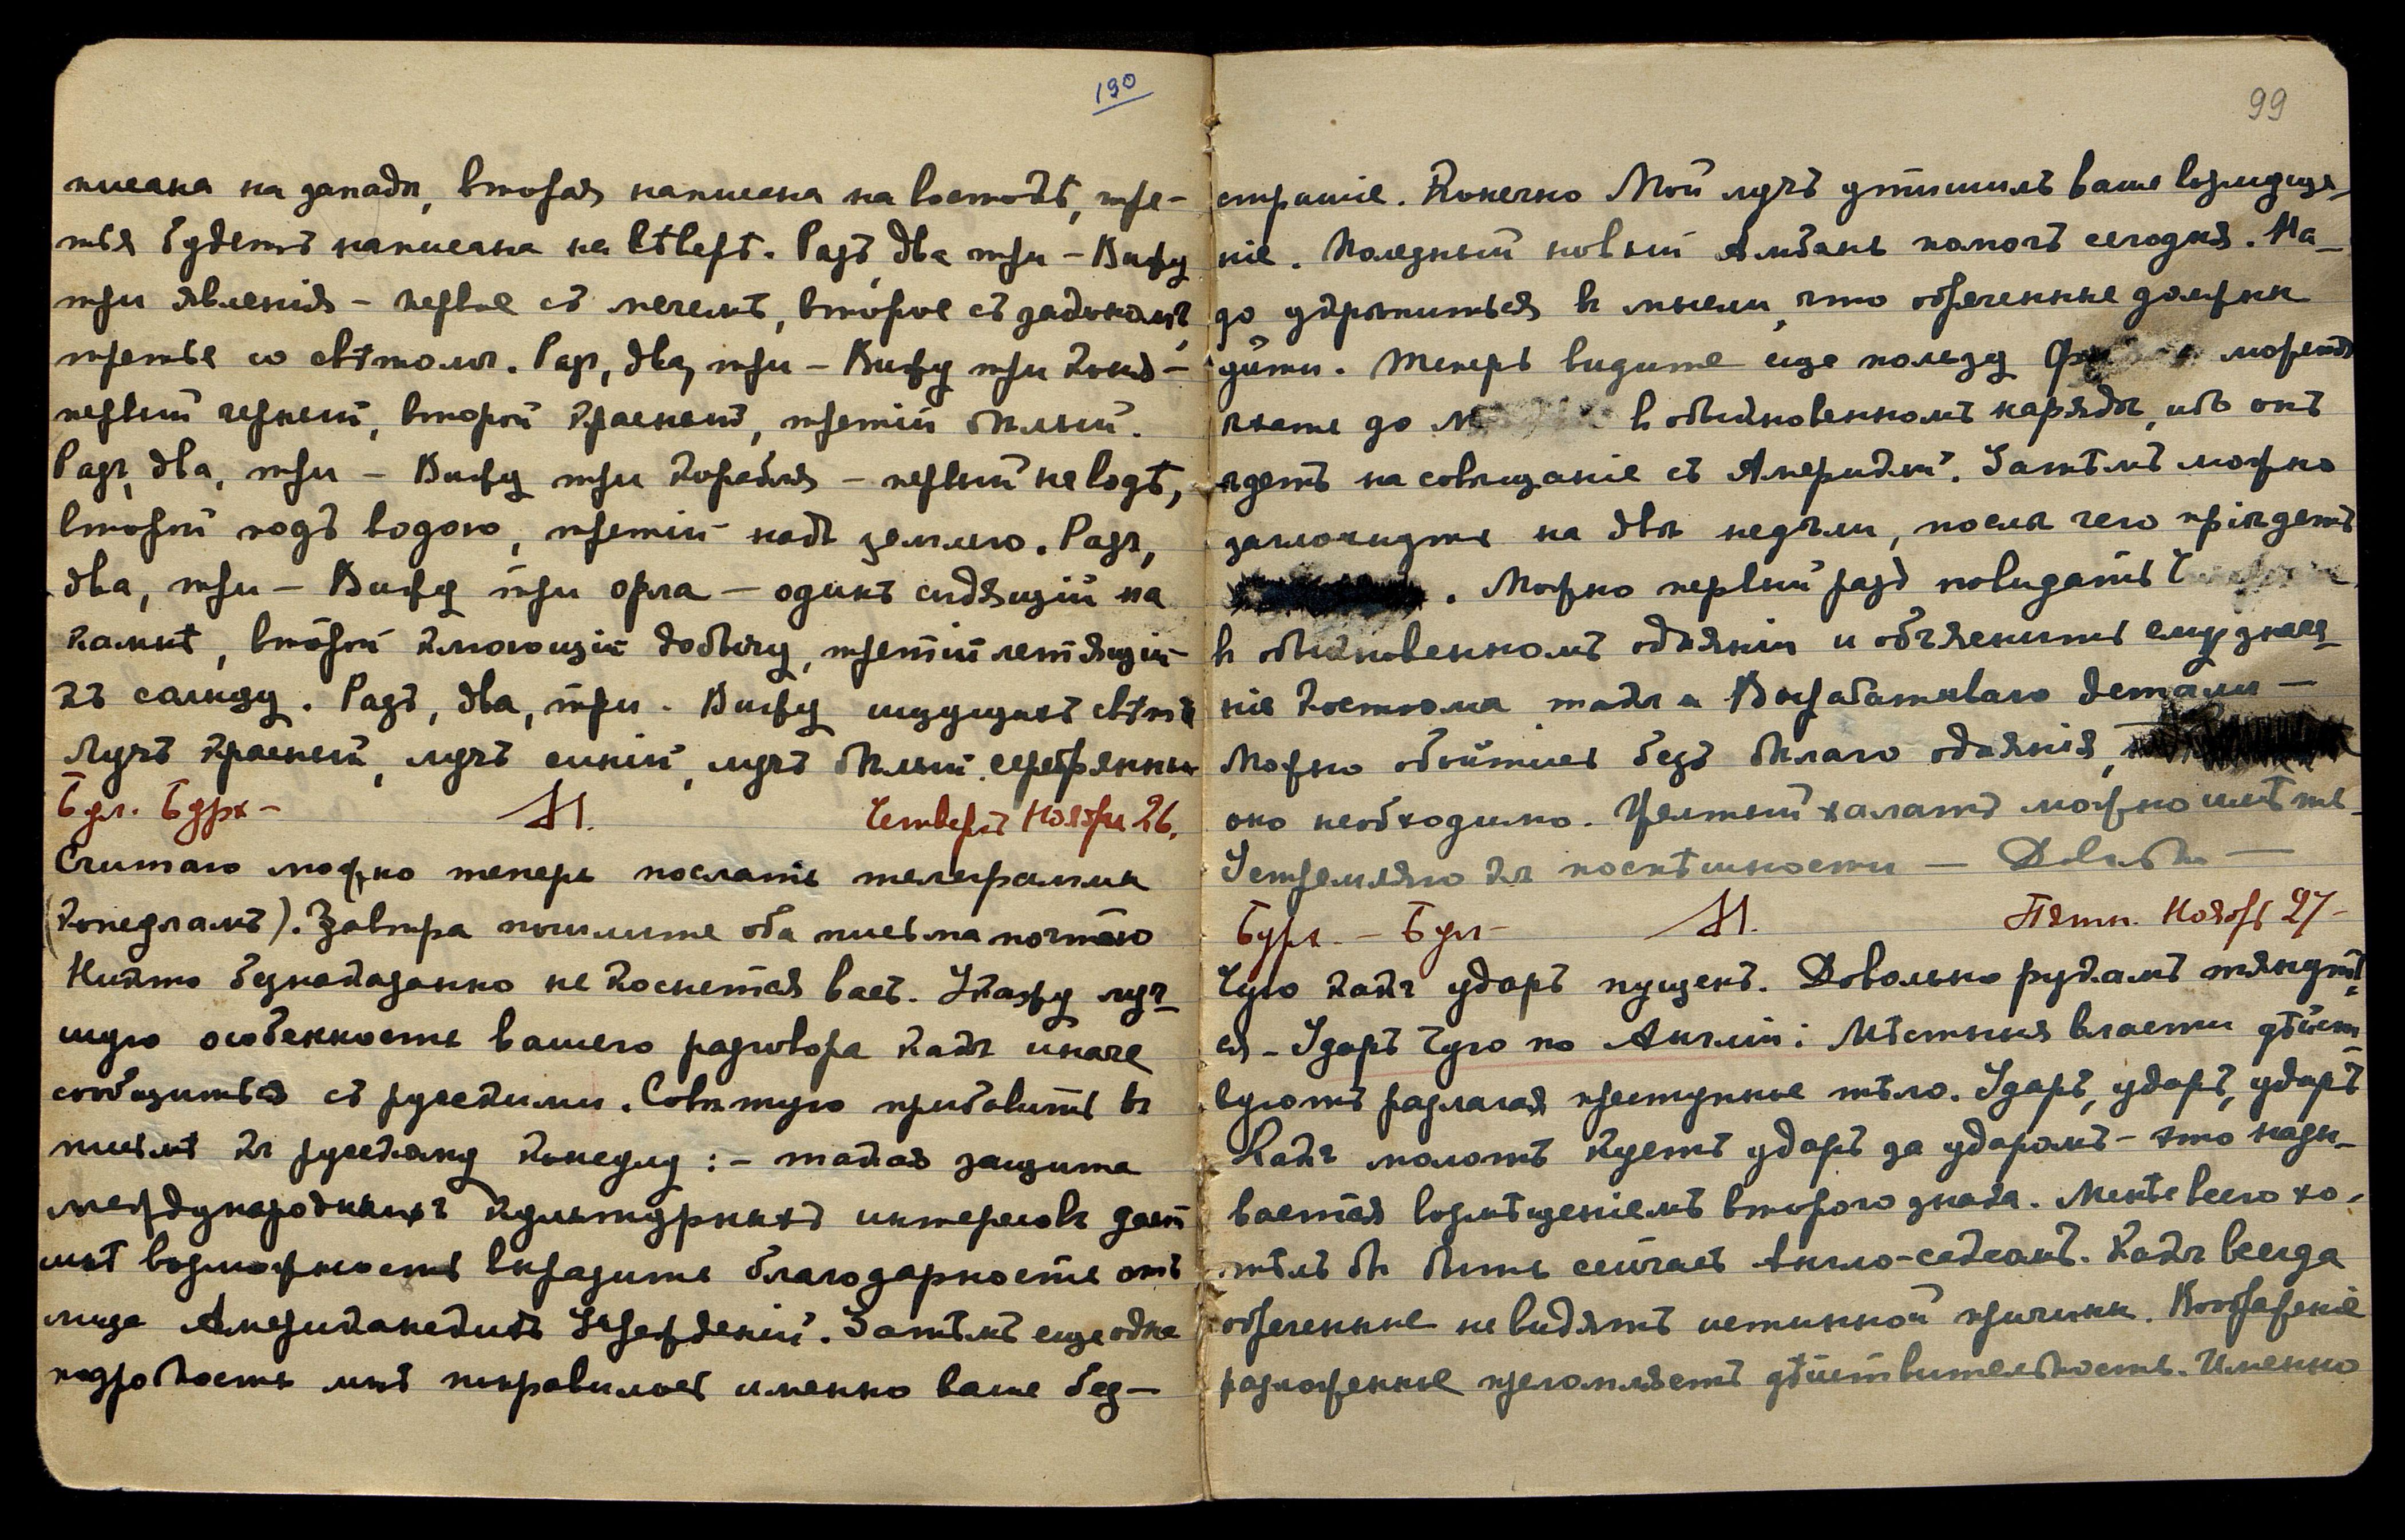 190
писана на западѣ, вторая написана на востокѣ, тре-
тья будетъ написана на сѣверѣ. Разъ два три – Вижу
три явленія – первое съ мечемъ, второе съ закономъ,
третье со свѣтомъ. Разъ, два, три – Вижу три коня –
первый черный, второй красный, третій бѣлый.
Разъ, два, три – Вижу три корабля – первый на водѣ,
второй подъ водою, третій надъ землею. Разъ,
два, три – Вижу три орла – одинъ сидящій на
камнѣ, второй клюющій добычу, третій летящій
къ солнцу. Разъ, два, три. Вижу ищущихъ свѣтъ
Лучъ красный, лучъ синій, лучъ бѣлый, серебрянный
Бул. Бурх – М. Четвергъ Ноябрь 26.
Считаю можно теперь послать телеграммы
(консуламъ). Завтра пошлите оба письма почтою
Никто безнаказанно не коснется васъ. Укажу луч-
шую особенность вашего разговора какъ иначе
сообщиться съ русскими. Совѣтую прибавить въ
письмѣ къ русскому консулу: – такая защита
международныхъ культурныхъ интересовъ даетъ
мнѣ возможность выразить благодарность отъ
лица Американскихъ Учрежденій. Затѣмъ еще одна
подробность мнѣ понравилась именно ваше без-
99
страшіе. Конечно Мой лучъ утишилъ ваше возмуще-
ніе. Полезный новый Амбань помогъ сегодня. На-
до укрѣпиться въ мысли, что обреченные должны
уйти. Теперь видите еще пользу можете
ѣхать до въ обыкновенномъ нарядѣ, ибо онъ
ѣдетъ на совѣщаніе съ Америкой. Затѣмъ можно
на двѣ недѣли, послѣ чего пріѣдетъ
. Можно первый разъ повидать
въ обыкновенномъ одѣяніи и объяснить ему значе-
ніе костюма такъ и Вырабатываю детали –
Можно обойтись безъ бѣлаго одѣянія,
оно необходимо. Желтый халатъ можно имѣть
Устремляю къ поспѣшности – Довольно –
Бурх. – Бул – М. Пятн. Ноябрь 27 –
Чую какъ ударъ пущенъ. Довольно рукамъ тянуть-
ся – Ударъ Чую по Англіи: Мѣстныя власти дѣйст
вуютъ разлагая преступное тѣло. Ударъ, ударъ, ударъ
Какъ молотъ куетъ ударъ за ударомъ – это назы-
вается возмѣщеніемъ второго знака. Менѣе всего хо-
тѣлъ бы быть сейчасъ Англо-саксомъ. Какъ всегда
обреченные не видятъ истинной причины. Воображеніе
разложенное преломляетъ дѣйствительность. Именно